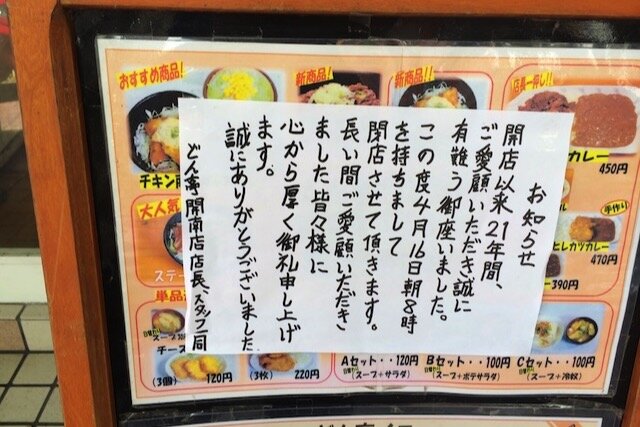 お知らせ
開店以来21年間、
ご愛顧いただき誠に
有難う御座いました。
この度4月16日朝8時
を持ちまして
閉店させて頂きます。
長い間ご愛顧いただき
ました皆々様に
心から厚く御礼申し上げ
ます。
誠にありがとうございました
どん亭開南店店長、スタッフ一同
おすすめ商品!
新商品!
新商品!
店長一押し!!
チキン南
カレー
450円
大人気
手作り
ヒレカツカレー
470円
ステー
390円
単品
日替わり
スープ
チーズ
(3個)
120円
(3枚)
220円
Aセット・・120円
日替わり
(スープ+サラダ)
Bセット・・100円
日替わり
(スープ+ポテサラダ)
Cセット・・100円
日替わり
(スープ+冷奴)